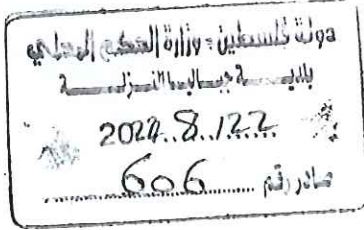 دولة فلسطين - وزارة الحكم المحلي
بلديـــة جبـاليـا النـزلـــة
2022..8../22
صادر رقم 606